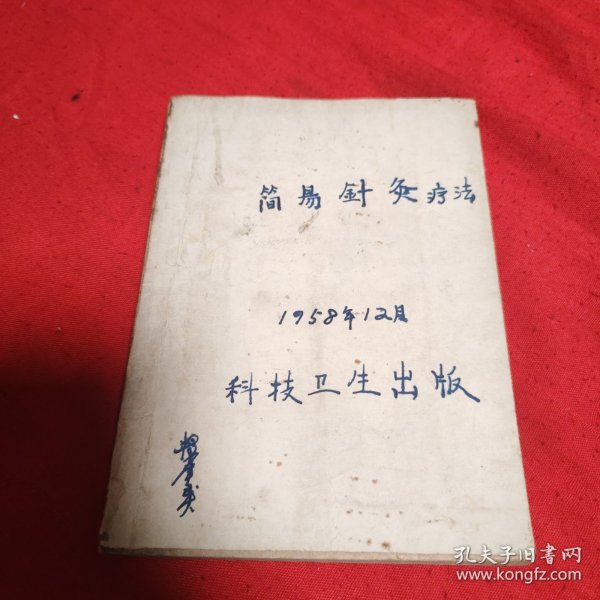 简易針灸疗法
1958年12月
科技卫生出版
孔夫子旧书网
www.kongfz.com